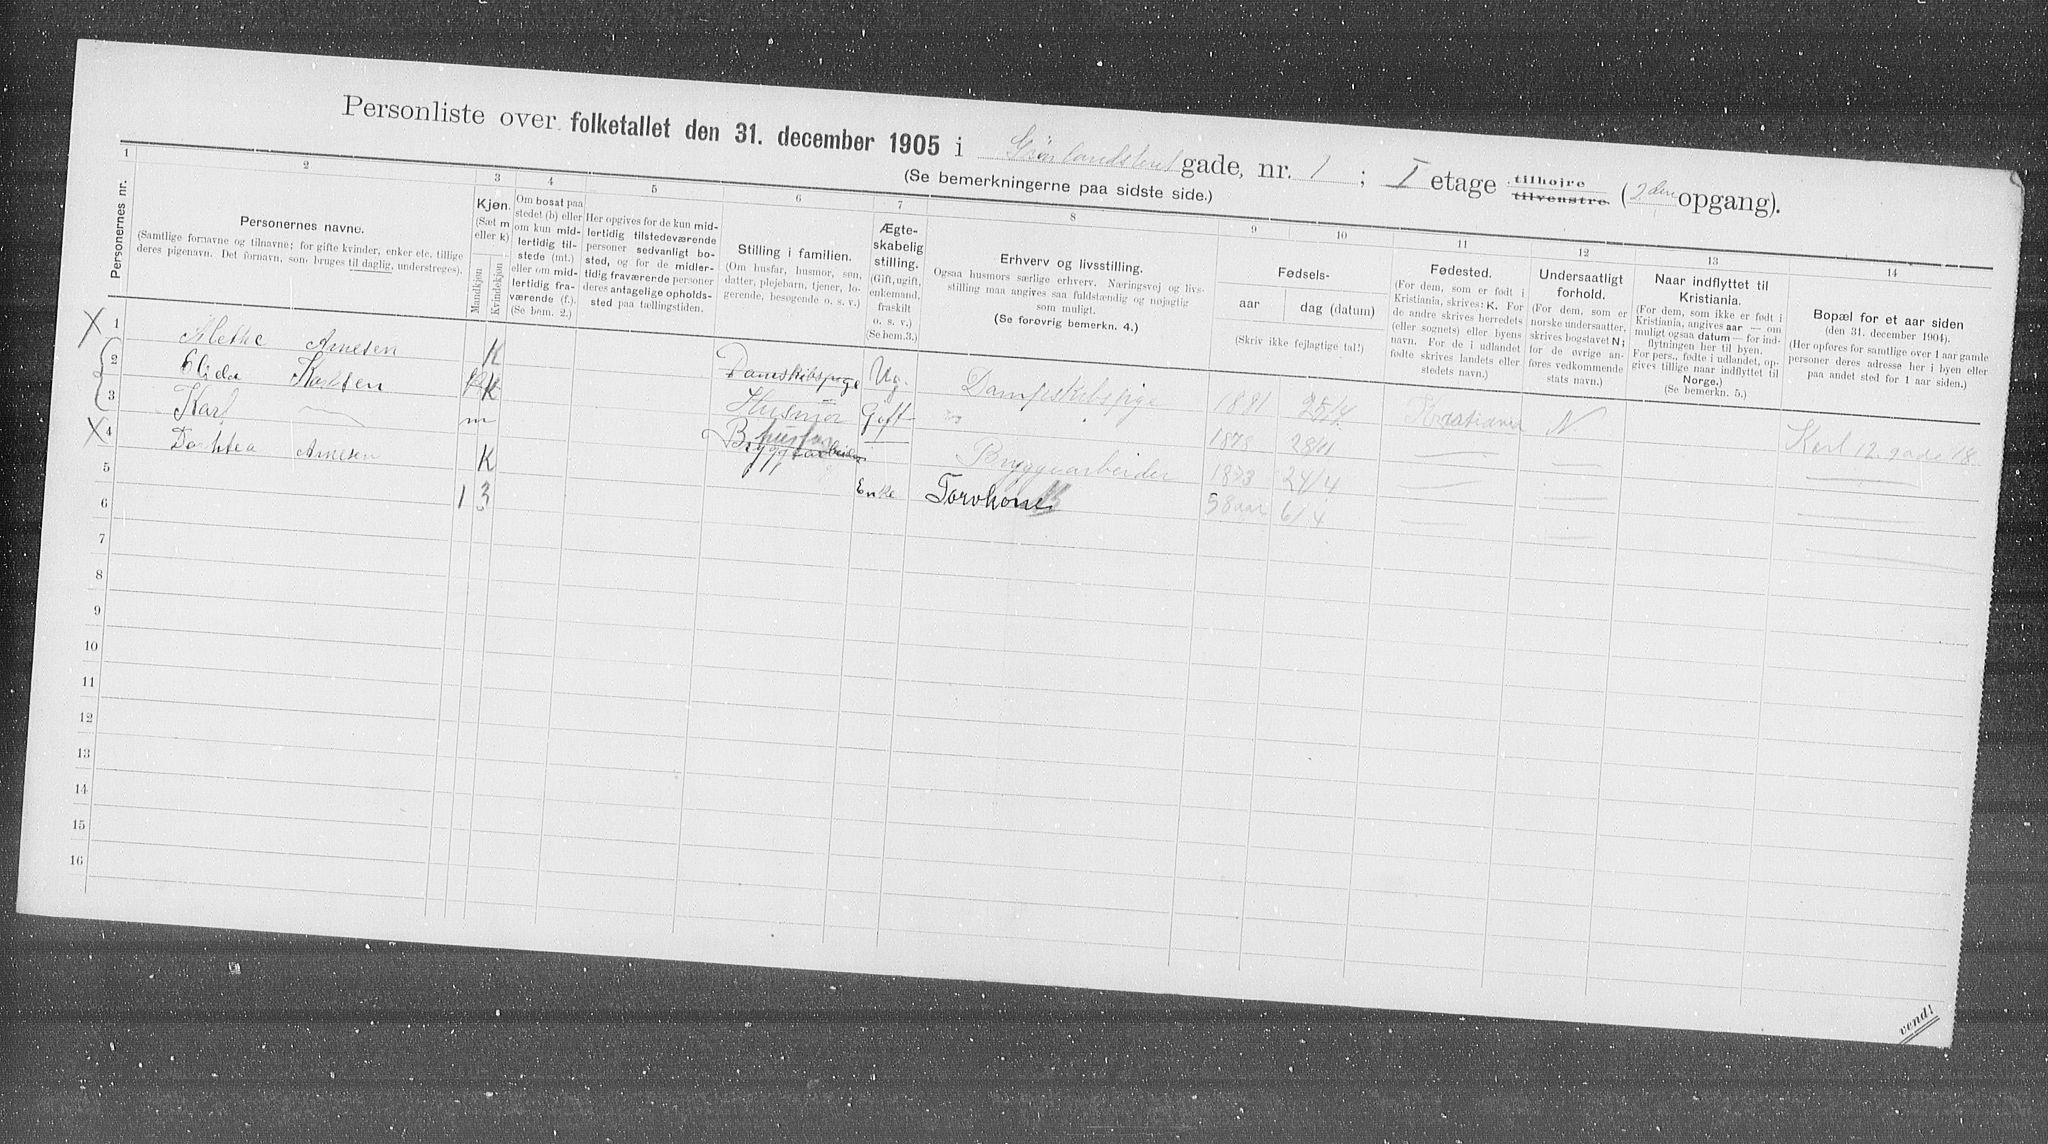 Personliste over folketallet den 31. december 1905 i Grønlandsleret gade, nr. 1 ; I etage tilhøjre tilvenstre. (2den opgang).
(Se bemerkningerne paa sidste side.)
1 2 3 4 5 6 7 8 9 10 11 12 13 14
Personernes nr.
Personernes navne.
(Samtlige fornavne og tilnavne; for gifte kvinder, enker etc. tillige
deres pigenavn. Det fornavn, som bruges til daglig, understreges).
Kjøn.
(Sæt m
eller k)
Mandkjøn
Kvindekjøn
Om bosat paa
stedet (b) eller
om kun mid-
lertidig til-
stede (mt.)
eller om mid-
lertidig fra-
værende (f.).
(Se bem. 2.)
Her opgives for de kun mid-
lertidig tilstedeværende
personer sedvanligt bo-
sted, og for de midler-
tidig fraværende personer
deres antagelige opholds-
sted paa tællingstiden.
Stilling i familien.
(Om husfar, husmor, søn,
datter, plejebarn, tjener, lo-
gerende, besøgende o. s. v.)
Ægte-
skabelig
stilling.
(Gift, ugift,
enkemand,
fraskilt
o. s. v.)
(Se bem. 3.)
Erhverv og livsstilling.
Ogsaa husmors særlige erhverv. Næringsvej og livs-
stilling maa angives saa fuldstændig og nøjagtig
som muligt.
(Se forøvrig bemerkn. 4.)
Fødsels-
aar dag (datum)
(Skriv ikke fejlagtige tal!)
Fødested.
(For dem, som er født i
Kristiania, skrives: K. For
de andre skrives herredets
(eller sognets) eller byens
navn. For de i udlandet
fødte skrives landets eller
stedets navn.)
Undersaatligt
forhold.
(For dem, som er
norske undersaatter,
skrives bogstavet N;
for de øvrige an-
føres vedkommende
stats navn.)
Naar indflyttet til
Kristiania.
(For dem, som ikke er født i
Kristiania, angives aar — om
muligt ogsaa datum — for ind-
flytningen her til byen.
For pers., fødte i udlandet, op-
gives tillige naar indflyttet til
Norge.)
(Se bemerkn. 5.)
Bopæl for et aar siden
(den 31. december 1904).
(Her opføres for samtlige over 1 aar gamle
personer deres adresse her i byen eller
paa andet sted for 1 aar siden.)
X 1 Arnesen K Damskibspige Ug. Dampskibspige 1881 25/4 Kristiania N Karl 12. gade 18
2 Karlsen K Husmor Gift 1878 28/4
3 Karl m husfar Bryggearbeider Bryggearbeider 1873 24/4
X 4 Dorthea Arnesen K Enke Torvkone 58 aar 6/4
5 1 3
6
7
8
9
10
11
12
13
14
15
16
vend!